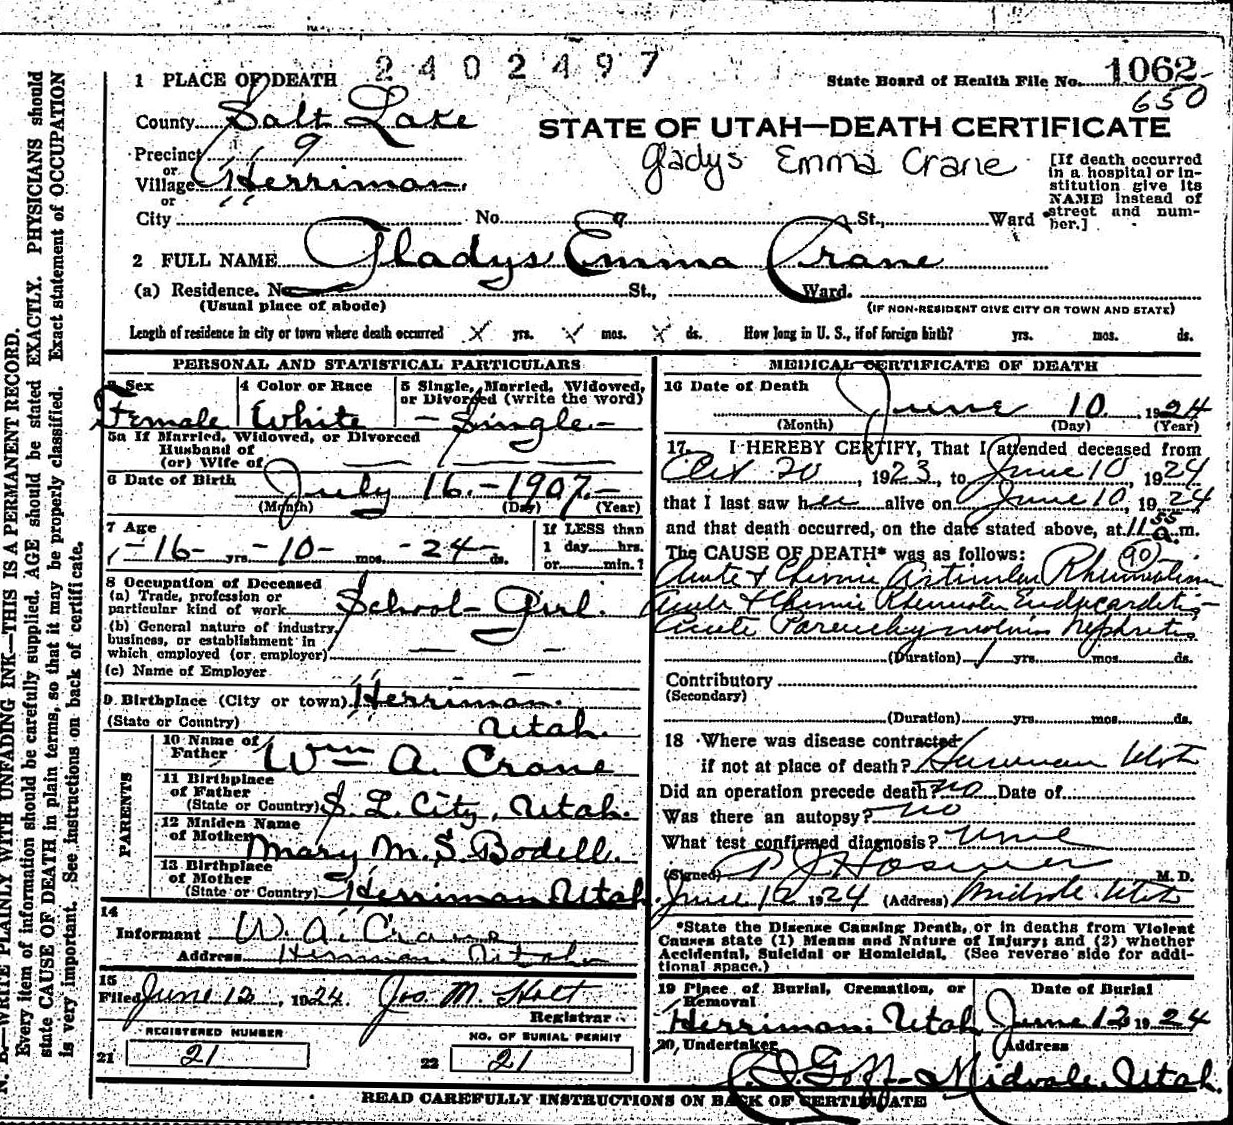 2402497
State Board of Health File No. 1062
650
1 PLACE OF DEATH
County Salt Lake
STATE OF UTAH—DEATH CERTIFICATE
Precinct 9
or
Village Herriman
or
Gladys Emma Crane
[If death occurred in a hospital or institution give its NAME instead of street and number.]
City No. St., Ward
2 FULL NAME Gladys Emma Crane
(a) Residence. No. St., Ward.
(Usual place of abode)
(IF NON-RESIDENT GIVE CITY OR TOWN AND STATE)
Length of residence in city or town where death occurred X yrs. X mos. X ds. How long in U. S., if of foreign birth? yrs. mos. ds.
PERSONAL AND STATISTICAL PARTICULARS
3 Sex
Female
4 Color or Race
White
5 Single, Married, Widowed, or Divorced (write the word)
- Single -
5a If Married, Widowed, or Divorced
Husband of
(or) Wife of
6 Date of Birth July 16 - 1907 -
(Month) (Day) (Year)
7 Age
-16- yrs. -10- mos. -24- ds.
If LESS than
1 day......hrs.
or......min.?
8 Occupation of Deceased
(a) Trade, profession or
particular kind of work School-Girl.
(b) General nature of industry,
business, or establishment in
which employed (or employer)
(c) Name of Employer
9 Birthplace (City or town) Herriman
(State or Country) Utah.
PARENTS
10 Name of
Father Wm A. Crane
11 Birthplace
of Father
(State or Country) S. L. City, Utah.
12 Maiden Name
of Mother Mary M. S. Bodell.
13 Birthplace
of Mother
(State or Country) Herriman Utah.
14
Informant W. A. Crane
Address Herriman Utah
15
Filed June 12, 1924. Jos. M. Holt
Registrar
REGISTERED NUMBER
21 21
NO. OF BURIAL PERMIT
22 21
MEDICAL CERTIFICATE OF DEATH
16 Date of Death
June 10, 1924
(Month) (Day) (Year)
17 I HEREBY CERTIFY, That I attended deceased from
Oct 20, 1923, to June 10, 1924
that I last saw her alive on June 10, 1924
and that death occurred, on the date stated above, at 11 55 a.m.
The CAUSE OF DEATH* was as follows: 90
Acute & Chronic Articular Rheumatism
Acute & Chronic Rheumatic Endocarditis
Acute Parenchymatous Nephritis
(Duration) 1 yrs. mos. ds.
Contributory
(Secondary)
(Duration) yrs. mos. ds.
18 Where was disease contracted
if not at place of death? Herriman Utah
Did an operation precede death? no Date of
Was there an autopsy? no
What test confirmed diagnosis? Urine
(Signed) M. D.
June 12 1924 (Address) Midvale Utah
*State the Disease Causing Death, or in deaths from Violent
Causes state (1) Means and Nature of Injury; and (2) whether
Accidental, Suicidal or Homicidal. (See reverse side for additional space.)
19 Place of Burial, Cremation, or
Removal
Herriman, Utah
Date of Burial
June 12 1924
20 Undertaker
Goff
Address
Midvale, Utah.
READ CAREFULLY INSTRUCTIONS ON BACK OF CERTIFICATE
N. B.—WRITE PLAINLY WITH UNFADING INK—THIS IS A PERMANENT RECORD.
Every item of information should be carefully supplied. AGE should be stated EXACTLY. PHYSICIANS should
state CAUSE OF DEATH in plain terms, so that it may be properly classified. Exact statement of OCCUPATION
is very important. See instructions on back of certificate.